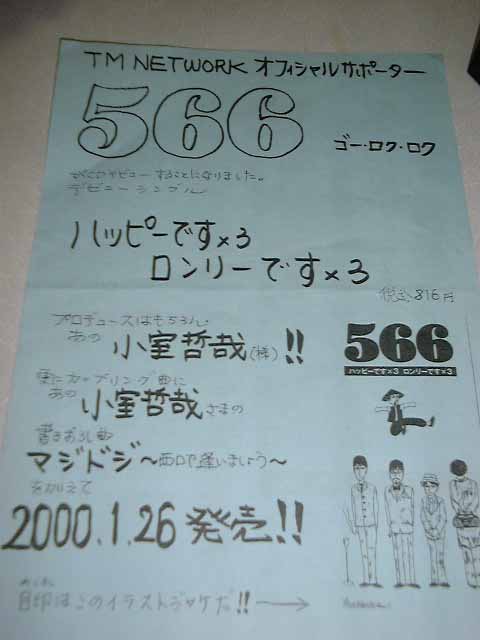 TM NETWORK オフィシャルサポーター
566
ゴー・ロク・ロク
がこのたびデビューすることになりました。
デビューシングル
ハッピーです×3
ロンリーです×3
税込816円
プロデュースはもちろん
あの 小室哲哉(様)!!
更にカップリング曲に
あの 小室哲哉さまの
書きおろし曲
マジドジ〜西口で逢いましょう〜
をかかえて
2000.1.26 発売!!
566
ハッピーです×3 ロンリーです×3
目印はこのイラストジャケだ!!→